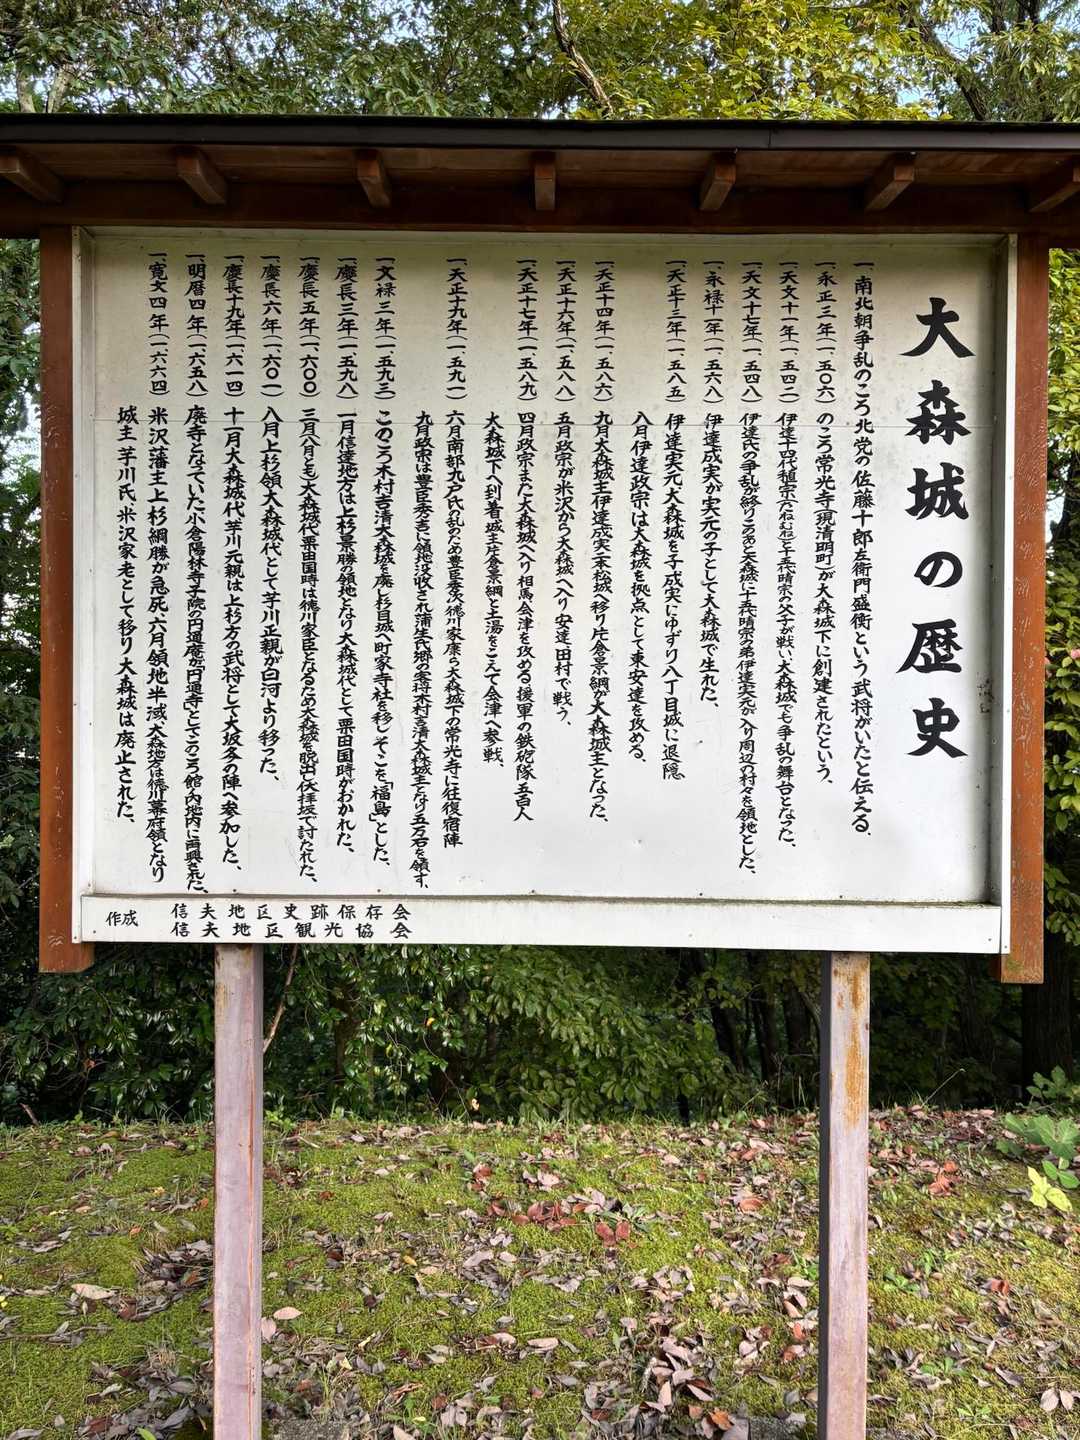 大森城の歴史
一、南北朝争乱のころ北党の佐藤十郎左衛門盛衡という武将がいたと伝える、
一、永正三年(一、五〇六)のころ常光寺(現清明町)が大森城下に創建されたという、
一、天文十一年(一、五四二)伊達十四代稙宗(たねむね)と十五代晴宗の父子が戦い大森城でも争乱の舞台となった、
一、天文十七年(一、五四八)伊達氏の争乱が終りこのあと大森城に十五代晴宗の弟伊達実元が入り周辺の村々を領地とした、
一、永禄十一年(一、五六八)伊達成実が実元の子として大森城で生れた、
一、天正十三年(一、五八五)伊達実元、大森城を子成実にゆずり八丁目城に退隠
八月伊達政宗は大森城を拠点として東安達を攻める、
一、天正十四年(一、五八六)九月大森城主伊達成実二本松城へ移り片倉景綱が大森城主となった、
一、天正十六年(一、五八八)五月政宗が米沢から大森城へ入り安達、田村で戦う、
一、天正十七年(一、五八九)四月政宗また大森城へ入り相馬会津を攻める、援軍の鉄砲隊五百人
大森城下へ到着城主片倉景綱と土湯をこえて会津へ参戦、
一、天正十九年(一、五九一)六月南部九戸氏の乱のため豊臣秀次徳川家康ら大森城下の常光寺に往復宿陣
九月政宗は豊臣秀吉に領地没収され蒲生氏郷の客将木村吉清大森城主となり五万石を領す、
一、文禄三年(一、五九三)このころ木村吉清大森城を廃し杉目城へ町家寺社を移しそこを「福島」とした、
一、慶長三年(一、五九八)一月信達地方は上杉景勝の領地となり大森城代として栗田国時がおかれた、
一、慶長五年(一、六〇〇)三月(八月とも)大森城代栗田国時は徳川家臣となるため大森城を脱出し大拝坂で討たれた、
一、慶長六年(一、六〇一)八月上杉領大森城代として芋川正親が白河より移った、
一、慶長十九年(一、六一四)十一月大森城代芋川元親は上杉方の武将として大坂冬の陣へ参加した、
一、明暦四年(一、六五八)廃寺となっていた小倉陽林寺子院の円通庵が「円通寺」としてこのころ館ノ内地内に再興された、
一、寛文四年(一、六六四)米沢藩主上杉綱勝が急死、六月領地半減、大森地方は徳川幕府領となり
城主芋川氏、米沢家老として移り大森城は廃止された、
作成 信夫地区史跡保存会
信夫地区観光協会